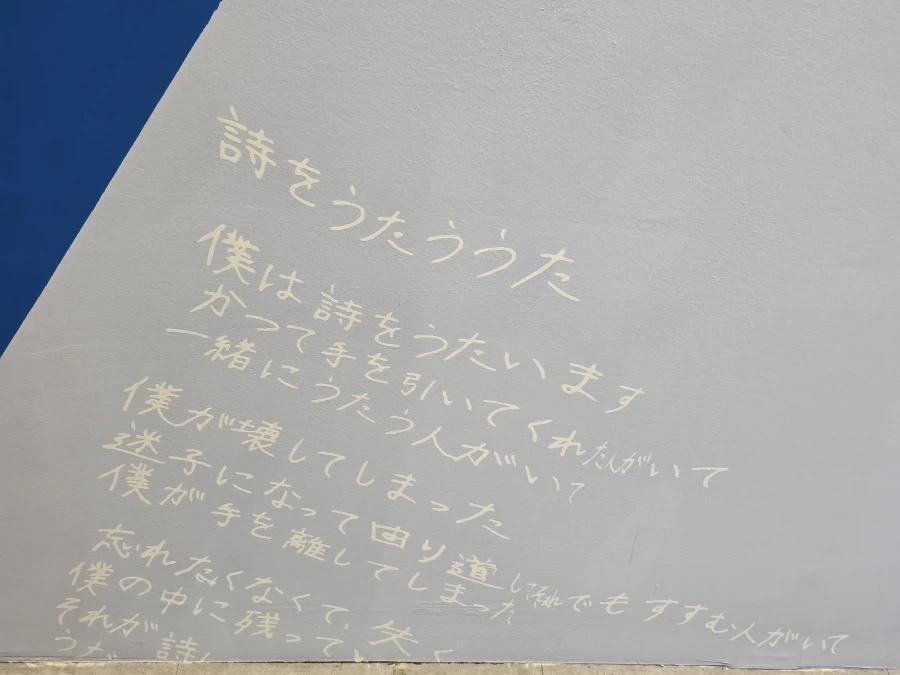 詩をうたううた
僕は詩をうたいます
かつて手を引いてくれた人がいて
一緒にうたう人がいて
僕が壊してしまった
迷子になって回り道してそれでもすすむ人がいて
僕が手を離してしまった
忘れたくなくて、失く
僕の中に残って
それが詩